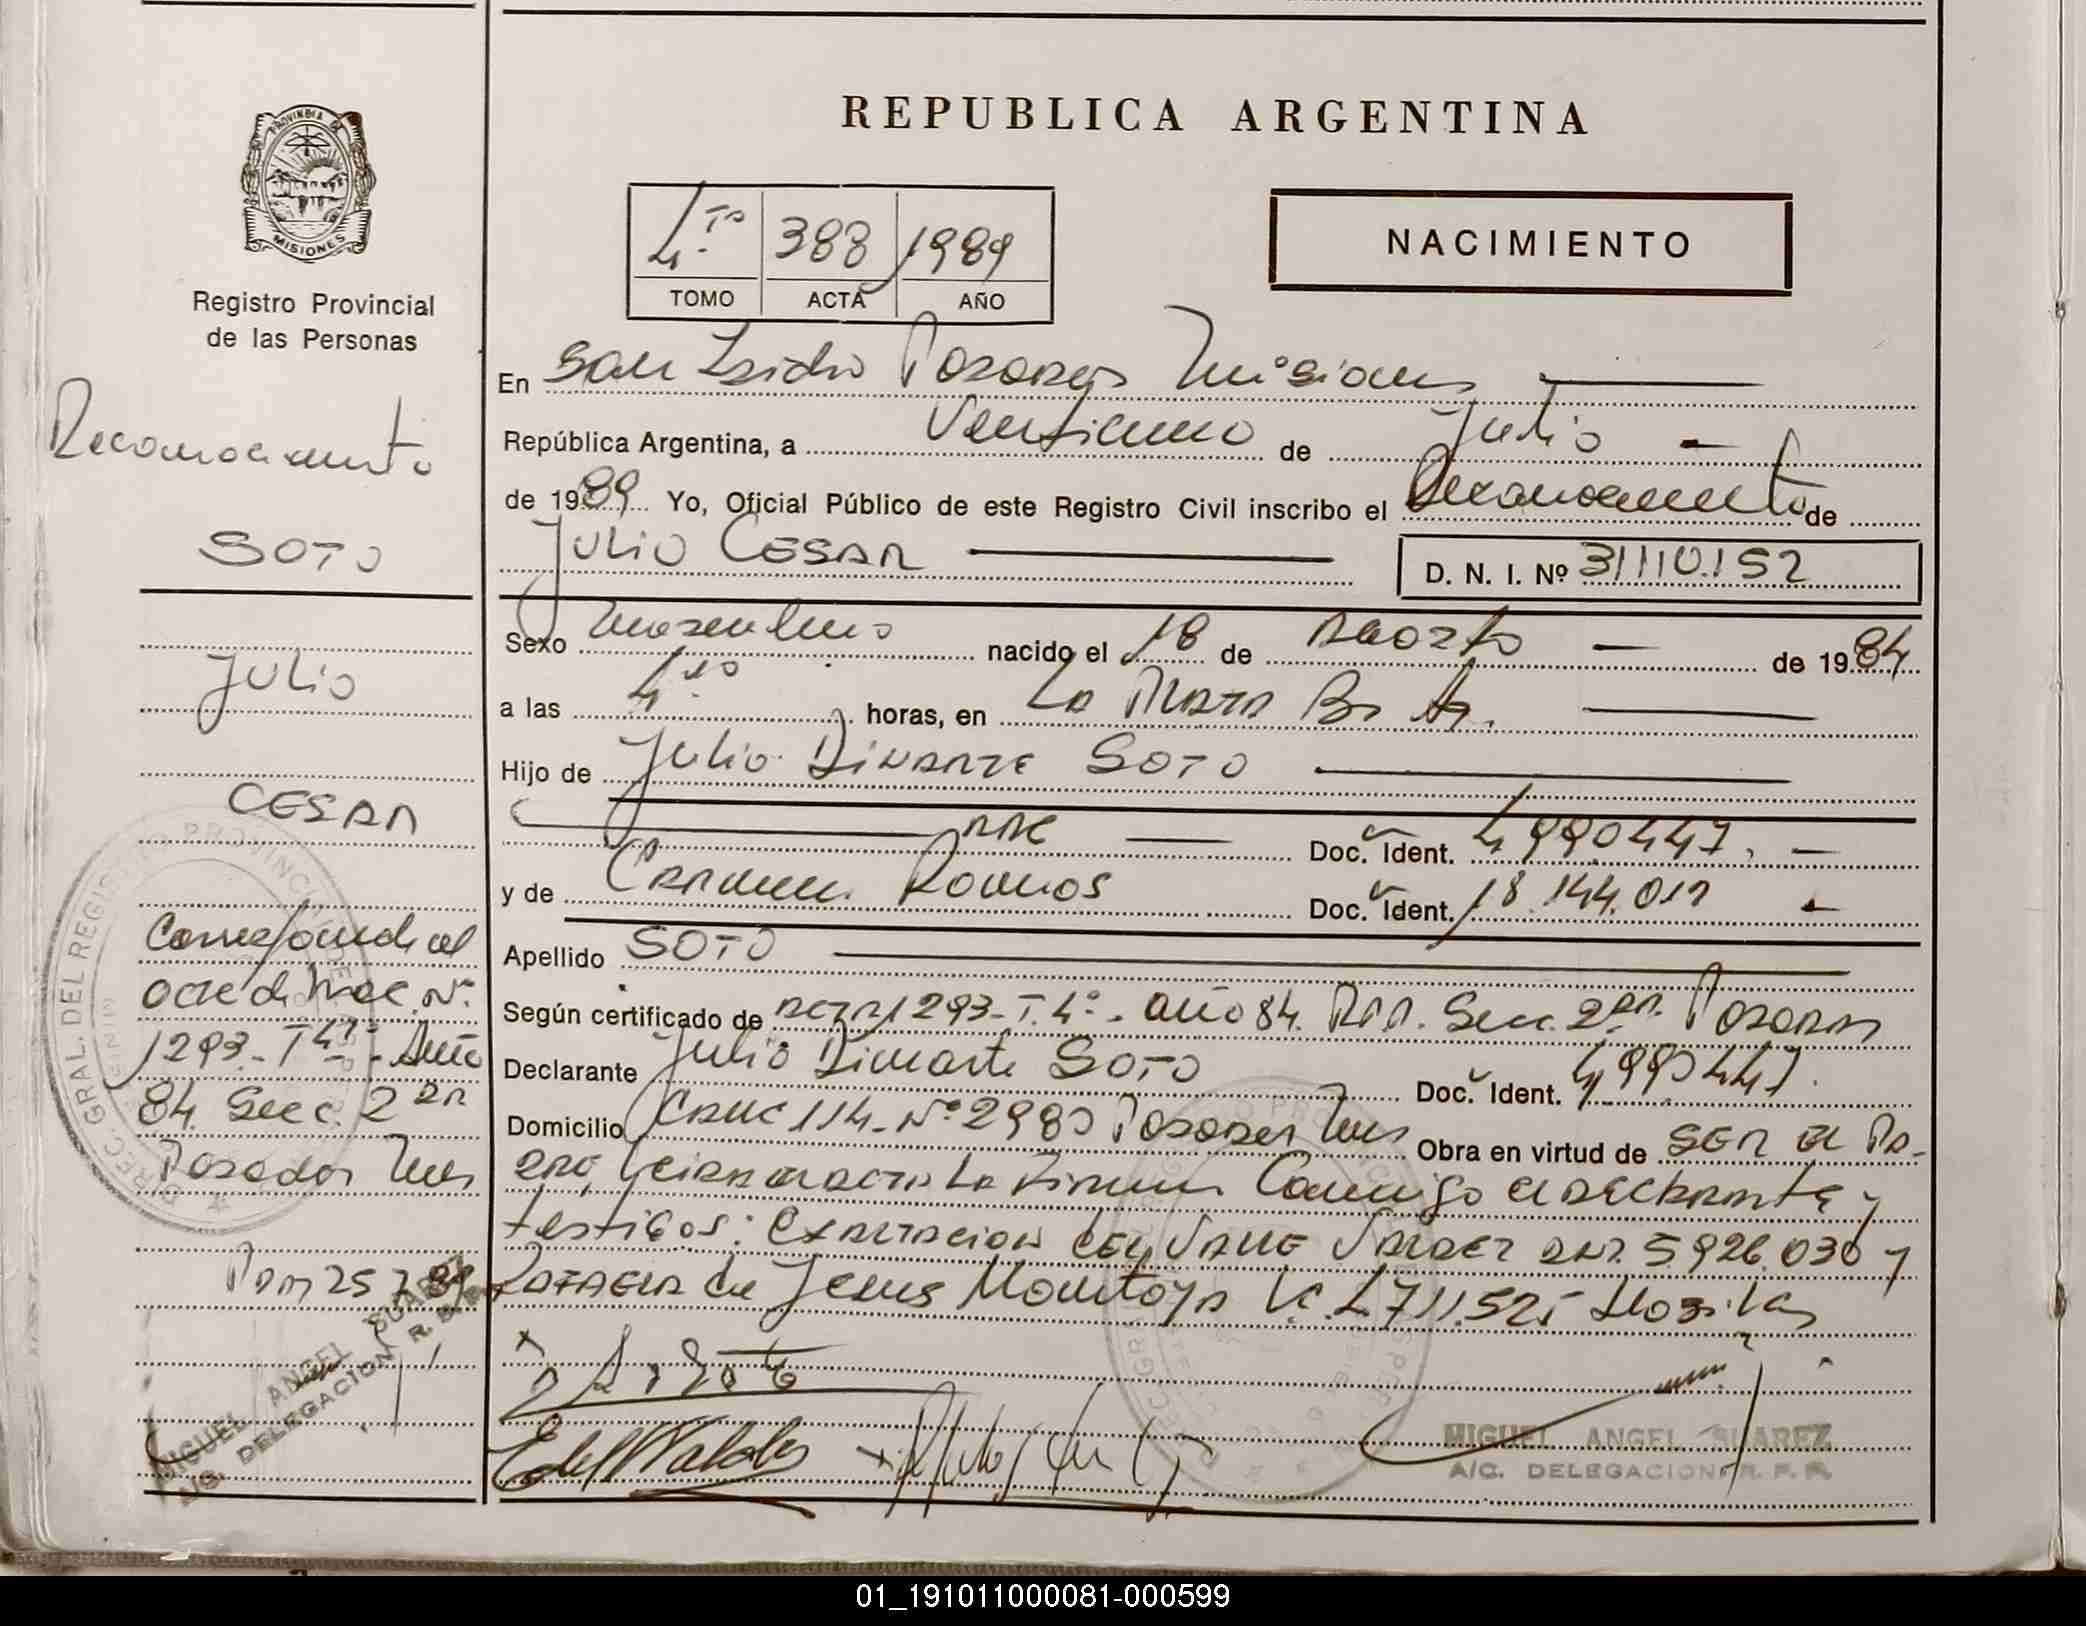 REPUBLICA ARGENTINA
PROVINCIA DE
MISIONES
Registro Provincial
de las Personas
4to 388 1989
TOMO ACTA AÑO
NACIMIENTO
En San Isidro Posadas Misiones
República Argentina, a Veintiuno de Julio
de 1989 Yo, Oficial Público de este Registro Civil inscribo el Reconocimiento de
JULIO CESAR
D. N. I. Nº 31110.152
Sexo Masculino nacido el 18 de Agosto de 1984
a las 4 horas, en La Plata Bs As.
Hijo de Julio DINARTE SOTO
ARG Doc. Ident. 4990447.
y de Carmen Ramos Doc. Ident. 18.144.017
Apellido SOTO
Según certificado de ACTA 1293-T. 4º. Año 84. Secc. 2da. Posadas
Declarante Julio Dinarte SOTO Doc. Ident. 4990447.
Domicilio 114-Nº 2980 Posadas Mnes Obra en virtud de SER EL PA-
DRE, la Firman Conmigo el DECLARANTE y
testigos: EXALTACION DEL VALLE DNI. 5.926.030 y
RAFAELA de Jesus Montoya L.C. 1.711.525
MIGUEL ANGEL SUAREZ
A/C. DELEGACION R. P. P.
Reconocimiento
SOTO
Julio
CESAR
Corresponde al
acta de Nac. Nº
1293-T 4to-Año
84. Secc. 2da
Posadas Mnes
25 7 89
MIGUEL ANGEL SUAREZ
A/C. DELEGACION R. P. P.
DIREC. GRAL. DEL REGISTRO PROVINCIAL DE LAS
01_191011000081-000599